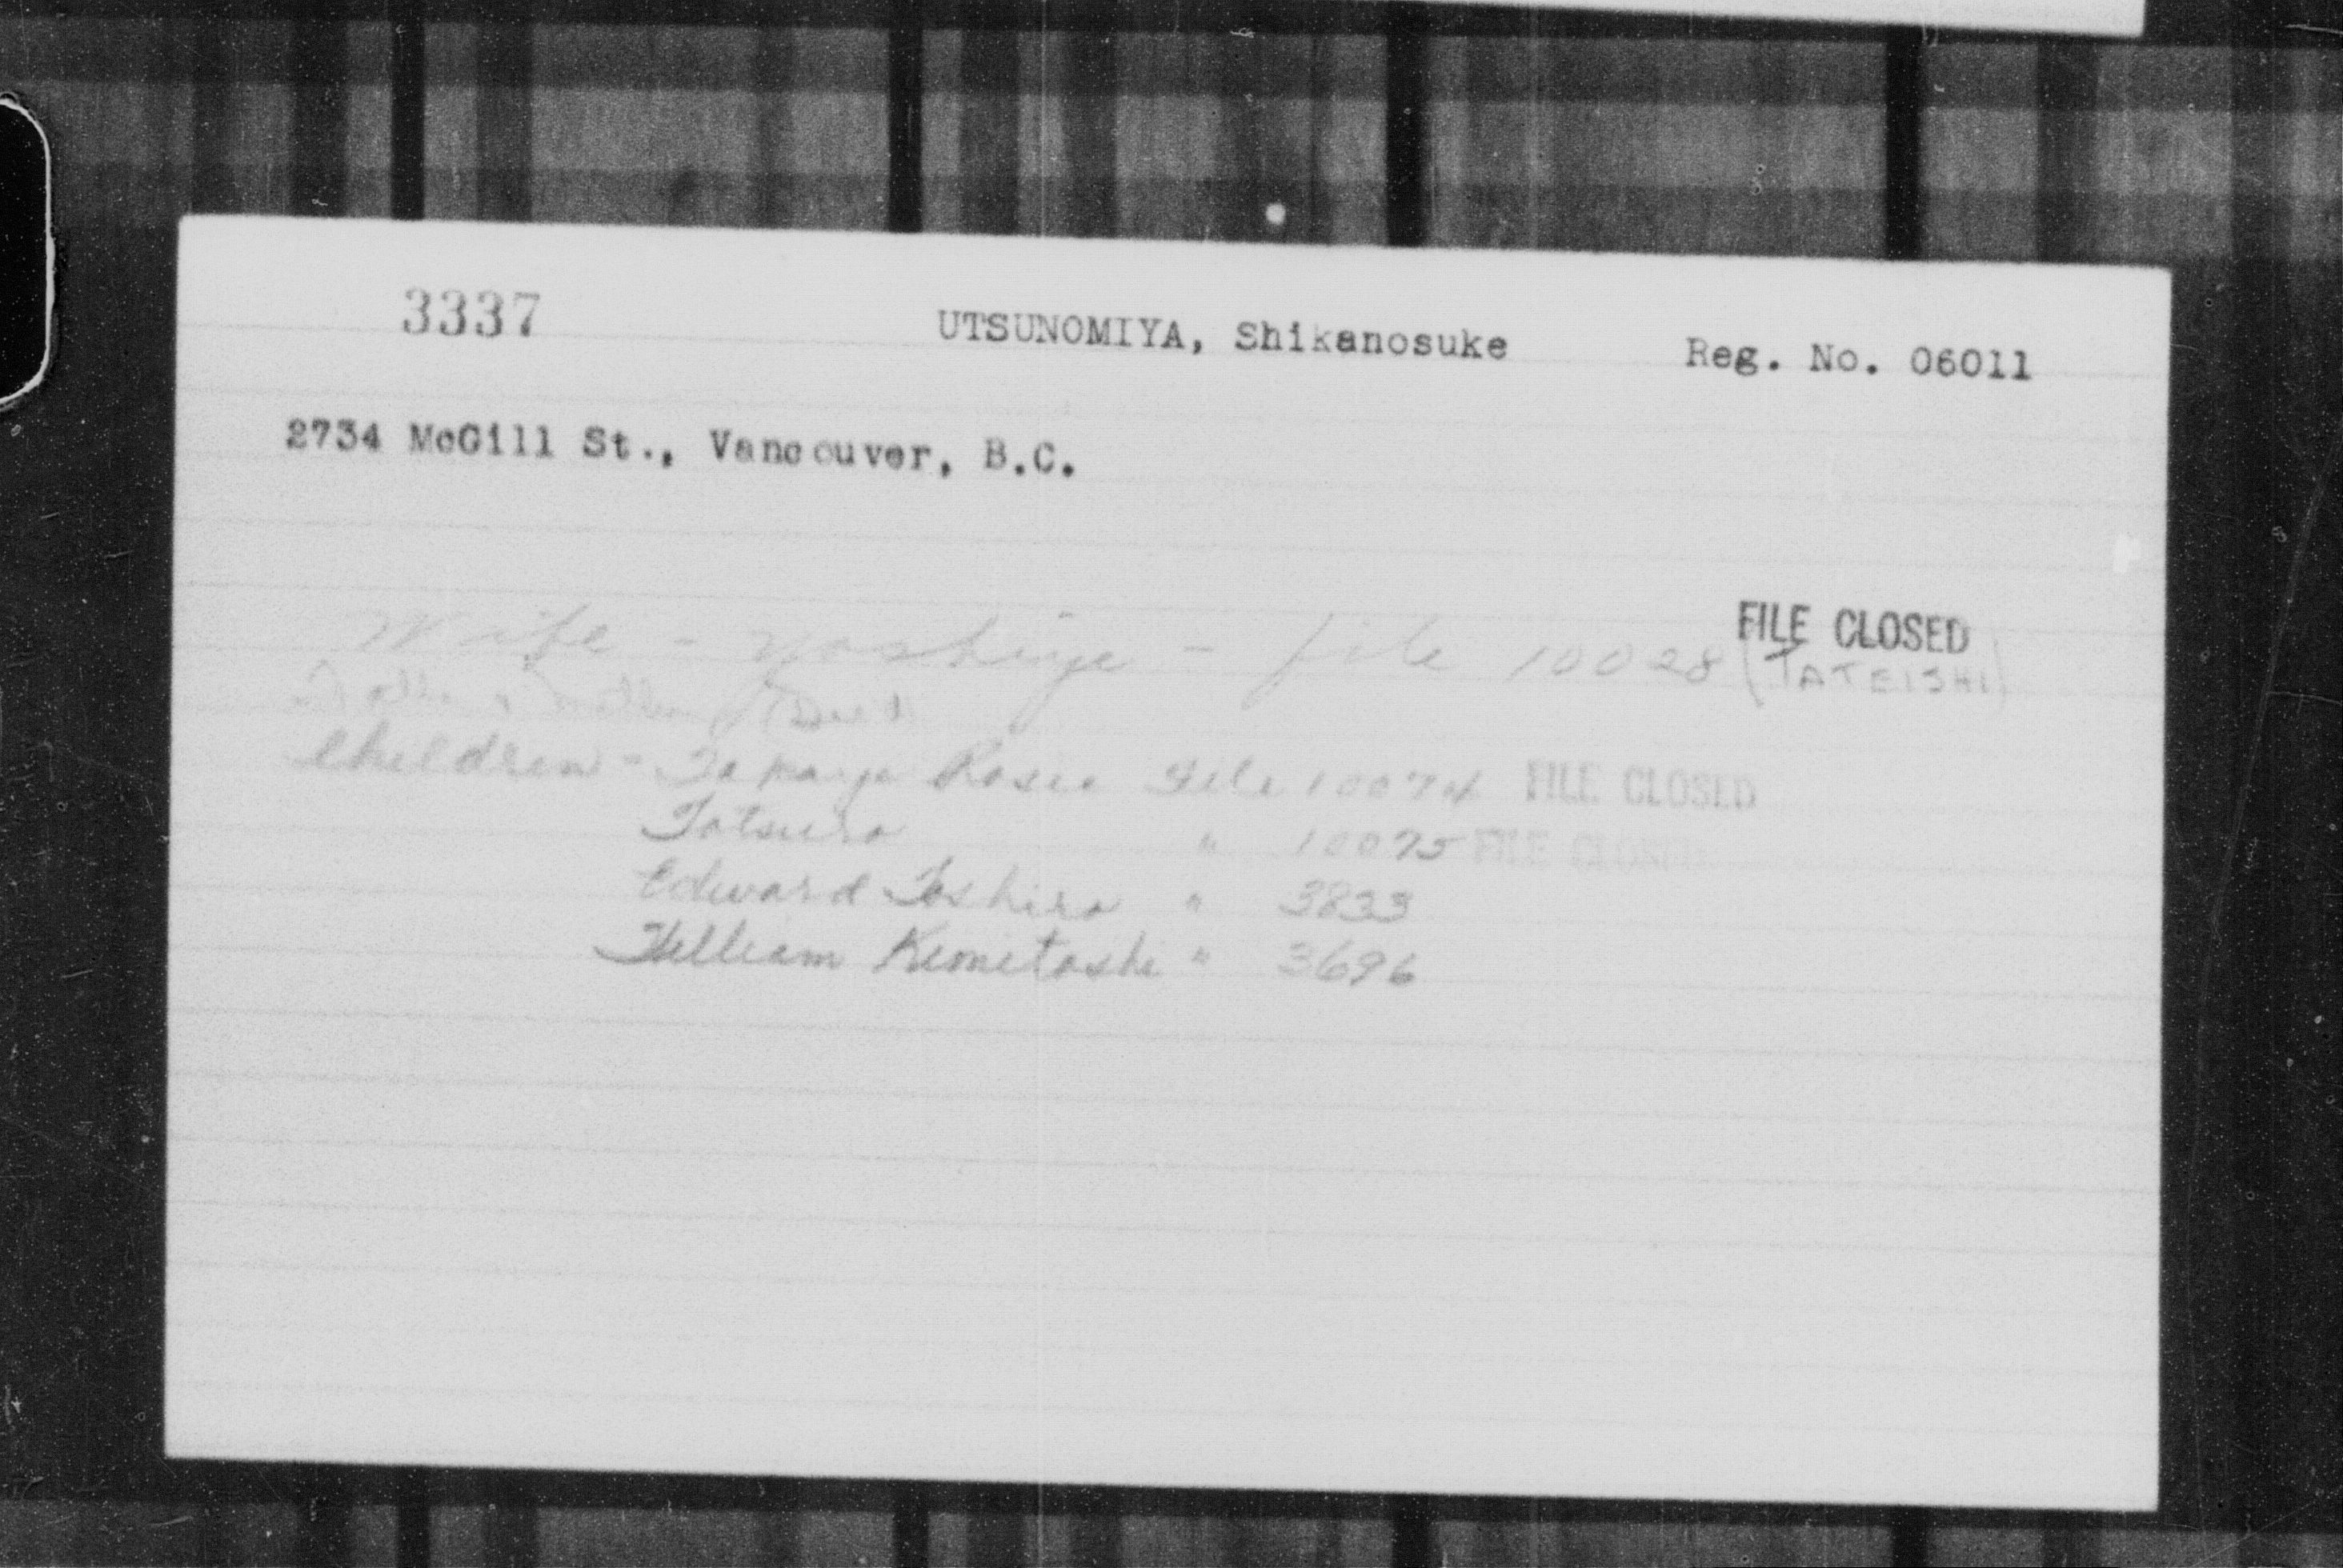 3337 UTSUNOMIYA, Shikanosuke Reg. No. 06011
2734 McGill St., Vancouver, B.C.
FILE CLOSED
Wife - Yoshiye - file 10028 (TATEISHI)
Father & Mother (Dec'd)
Children - Takaye Rosie File 10074 FILE CLOSED
Tatsuro " 10075 FILE CLOSED
Edward Toshiro " 3833
William Kimitoshi " 3696